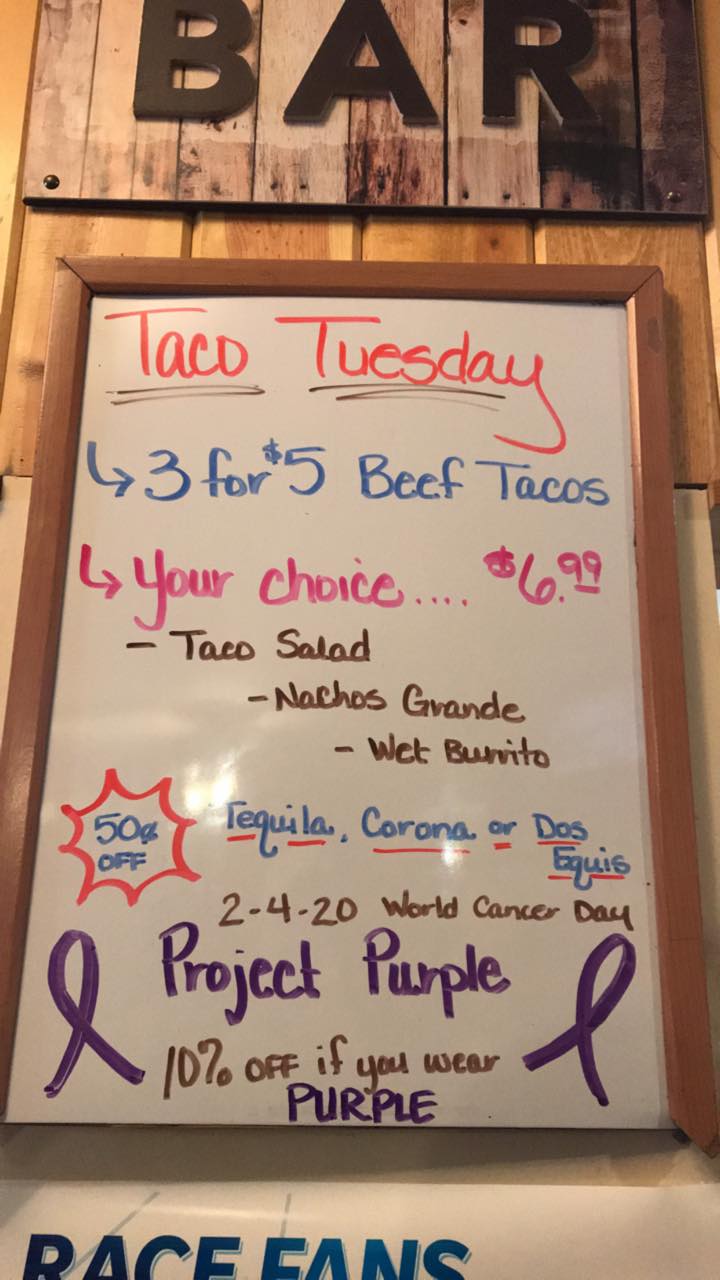 BAR
Taco Tuesday
↳ 3 for $5 Beef Tacos
↳ Your choice.... $6.99
- Taco Salad
- Nachos Grande
- Wet Burrito
50¢
OFF
Tequila, Corona or Dos
Equis
2-4-20 World Cancer Day
Project Purple
10% OFF if you wear
PURPLE
RACE FANS